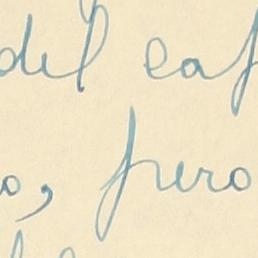 del caf
o, pero